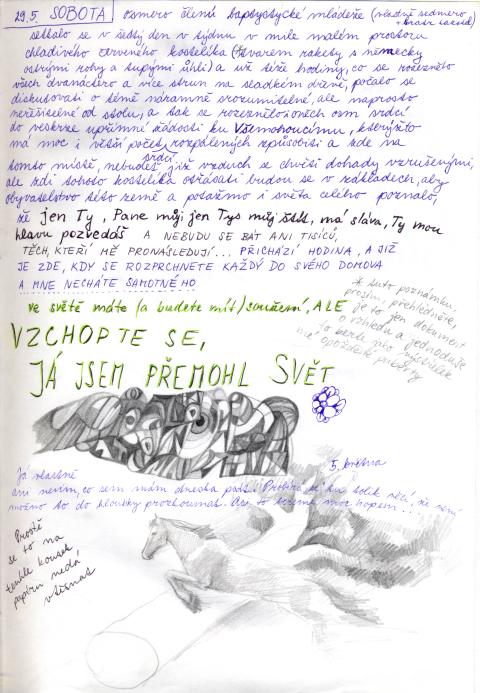 29.5. SOBOTA osmero členů baptystycké mládeže (vlastně sedmero
setkalo se v šestý den v týdnu v mile malém prostoru
chladivého červeného kostelíka (tvarem rakety s německy
ostrými rohy a tupými úhli) a už téže hodiny, co se rozeznělo
všech dvanáctero a více strun na sladkém dřevě, počalo se
diskutovati o téme náramně srozumitelné, ale naprosto
neřešitelné od stolu, a tak se rozeznělo i oněch osm srdcí
do veskrze upřímné žádosti ku Všemohoucímu, kterýžto
má moc i větší počet rozpálených způsobiti a zde na
srdcí
tomto místě, nebudeť již vzduch se chvíti dohady vzrušenými,
ale zdi tohoto kostelíka otřásati budou se v základech, aby
obyvatelstvo této země a potažmo i světa celého poznalo,
že jen Ty, Pane můj jen Tys můj štít, má sláva, Ty mou
hlavu pozvedáš A NEBUDU SE BÁT ANI TISÍCŮ,
TĚCH, KTEŘÍ MĚ PRONÁSLEDUJÍ... PŘICHÁZÍ HODINA, A JIŽ
JE ZDE, KDY SE ROZPRCHNETE KAŽDÝ DO SVÉHO DOMOVA
A MNE NECHÁTE SAMOTNÉHO
ve světě máte (a budete mít) soužení, ALE
VZCHOPTE SE,
JÁ JSEM PŘEMOHL SVĚT
* tuto poznámku,
prosím, přehlédněte,
je to jen dokument
o vzhledu a jednoduše
to berte jako
opožděné puberty
5. května
Já vlastně
ani nevím, co sem mám dneska psát. Probírá se tu tolik věcí, že není
možno to do hloubky prozkoumat. Ale to bereme moc hopem...
Prostě
se to na
tenhle kousek
papíru nedá
vtěsnat